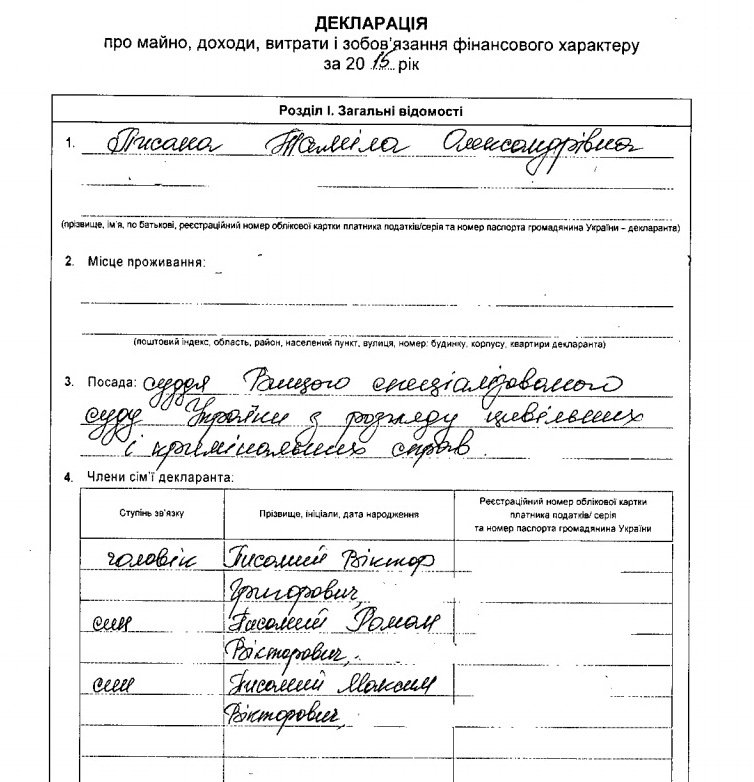 ДЕКЛАРАЦІЯ
про майно, доходи, витрати і зобов'язання фінансового характеру
за 2015 рік
Розділ I. Загальні відомості
1. Писана Таміла Олександрівна
(прізвище, ім'я, по батькові, реєстраційний номер облікової картки платника податків/серія та номер паспорта громадянина України – декларанта)
2. Місце проживання:
(поштовий індекс, область, район, населений пункт, вулиця, номер: будинку, корпусу, квартири декларанта)
3. Посада: суддя Вищого спеціалізованого
суду України з розгляду цивільних
і кримінальних справ.
4. Члени сім'ї декларанта:
Ступінь зв'язку
Прізвище, ініціали, дата народження
Реєстраційний номер облікової картки
платника податків/ серія
та номер паспорта громадянина України
чоловік Писаний Віктор
Григорович,
син Писаний Роман
Вікторович,
син Писаний Максим
Вікторович,